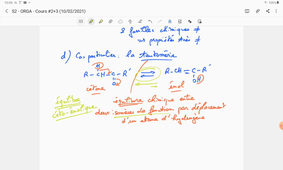 02 - ORGA - Cours #2+3 (10/02/2021)
2 familles chimiques ≠
≠ propriétés
d) Cas particulier : la tautomérie
R - CH - C - R' ⇌ R - CH = C - R'
O OH
cétone énol
équilibre céto-énolique
équilibre chimique entre
deux isomères de fonction par déplacement
d'un atome d'hydrogène